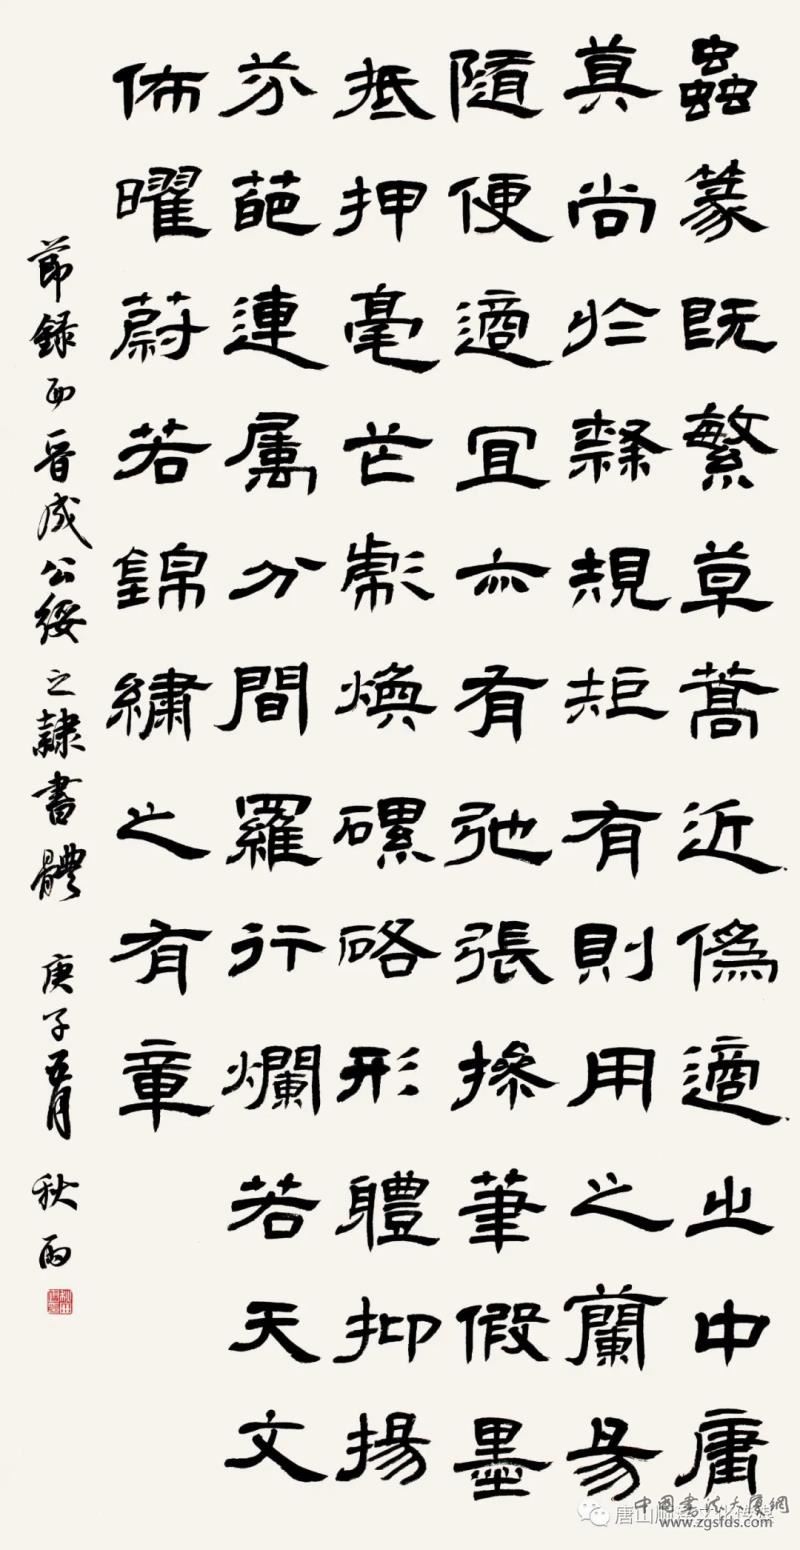 蟲篆既繁草藁近僞適之中庸
莫尚於隸規矩有則用之蘭易
隨便適宜亦有弛張操筆假墨
抵押毫芒彪煥磥硌形體抑揚
芬葩連屬分間羅行爛若天文
佈曜蔚若錦繡之有章
節録西晉成公綏之隸書體 庚子五月 秋雨
中國書法大厦網
唐山 文化传媒
www.zgsfds.com